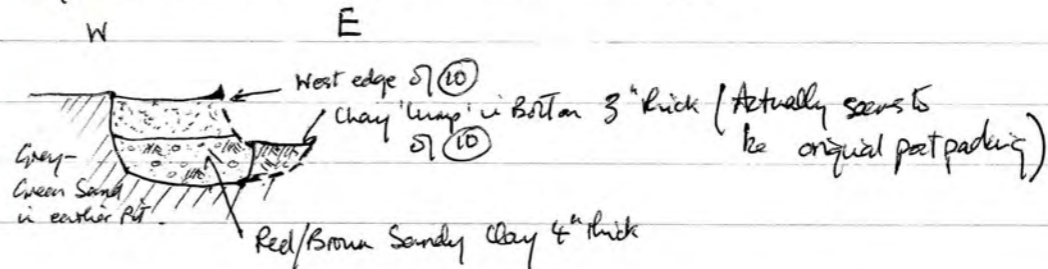 W E
West edge of 10
Clay 'lump' in Bottom 3" thick (Actually seems to
of 10 be original post packing)
Grey-
Green Sand
in earlier Pit.
Red/Brown Sandy Clay 4" thick